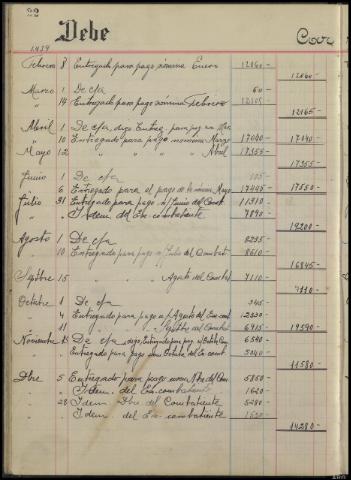 22
Debe
Cor
1939
Febrero 8 Entregado para pago nómina Enero 12060-
12060-
Marzo 1 De c/a 60-
" 14 Entregado para pago nómina Febrero 12105-
12165-
Abril 1 De c/a, digo Entreg. para pag.
" 10 Entregado para pago nómina Marzo 17040- 17040-
Mayo 12 " " " " Abril 17355-
17355-
Junio 1 De c/a 105-
" 6 Entregado para el pago de la nómina Mayo 17445- 17550-
Julio 31 Entregado para pago n/ Junio del Comb 11310-
" " Idem del Ex-combatiente 7890-
19200-
Agosto 1 De c/a 8235-
" 10 Entregado para pago n/ Julio del Combat. 8610-
16845-
Sepbre 15 " " " Agosto del Combat 7110-
7110-
Octubre 1 De c/a 345-
" 4 Entregado para pago n/ Agosto del Ex-comb 12330-
" 11 " " " Sepbre del Combat 6915- 19590-
Noviembre De c/a, digo Entregado para pag. n/ Octubre Com. 6540-
" Entregado para pago Octubre del Ex-comb 5040-
11580-
Dbre 5 Entregado para pago nom Nbre del Com 5850-
" " Idem. del Ex-combatiente 1620-
" 28 Idem Dbre del Combatiente 5190-
" " Idem. del Ex-combatiente 1620-
14280-